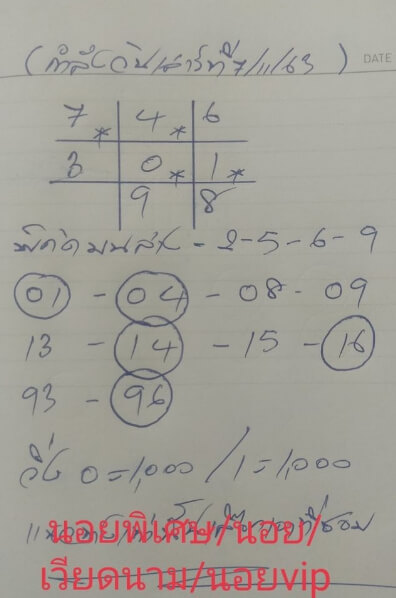 (กำลังวันเสาร์ที่ 7/11/63) DATE
7* 4* 6
3 0* 1*
9 8
- 2-5-6-9
01 - 04 - 08 - 09
13 - 14 - 15 - 16
93 - 96
วิ่ง 0=1,000 / 1=1,000
นอยพิเศษ/นอย/
เวียดนาม/นอยvip